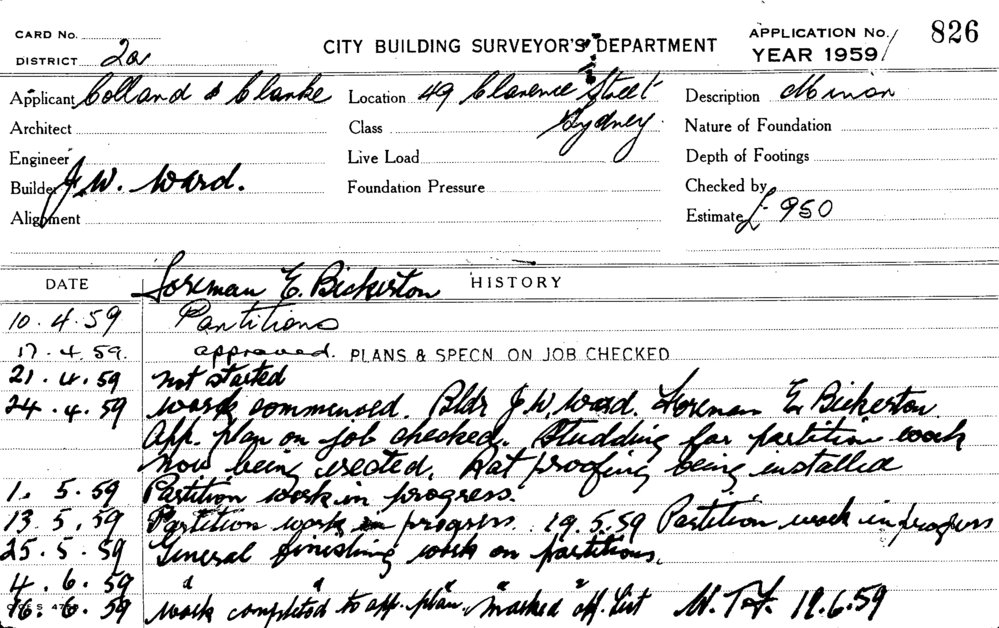 CARD No.
CITY BUILDING SURVEYOR'S DEPARTMENT
APPLICATION No. 826
DISTRICT 2a
YEAR 1959
Applicant Colland & Clarke
Location 49 Clarence Street
Sydney.
Description Minor
Architect
Class
Nature of Foundation
Engineer
Live Load
Depth of Footings
Builder J.W. Ward.
Foundation Pressure
Checked by
Alignment
Estimate £ 950
DATE
Foreman E. Bickerton
HISTORY
10.4.59 Partitions
17.4.59. approved. PLANS & SPECN ON JOB CHECKED
21.4.59 not started
24.4.59 work commenced. Bldr J.W. Ward. Foreman E. Bickerton
App. plan on job checked. Studding for partition work
now being erected. Rat proofing being installed
1. 5.59 Partition work in progress.
13.5.59 Partition work in progress. 19.5.59 Partition work in progress
25.5.59 General finishing work on partitions.
4.6.59 " " " " "
16.6.59 work completed to app. plan. marked off list 19.6.59